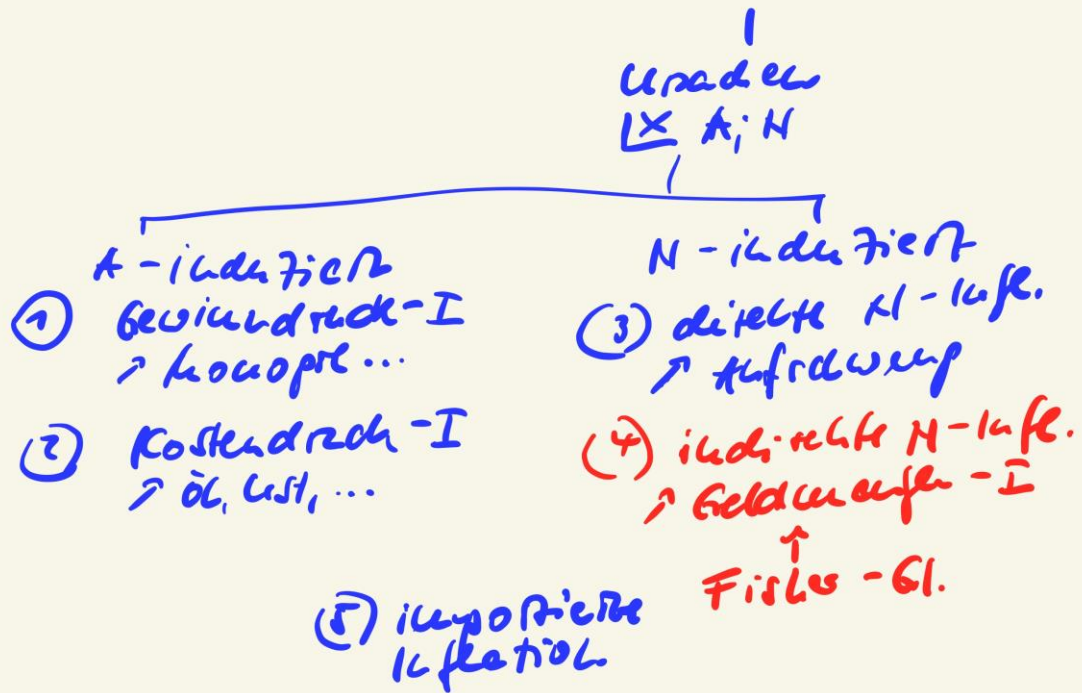 Ursachen
A; N
A-induziert
① Gewinndruck-I
↗ Monopol...
② Kostendruck-I
↗ Öl, USt, ...
N-induziert
③ direkte N-Infl.
↗ Aufschwung
④ indirekte N-Infl.
↗ Geldmengen-I
↑
Fisher-Gl.
⑤ importierte
Inflation